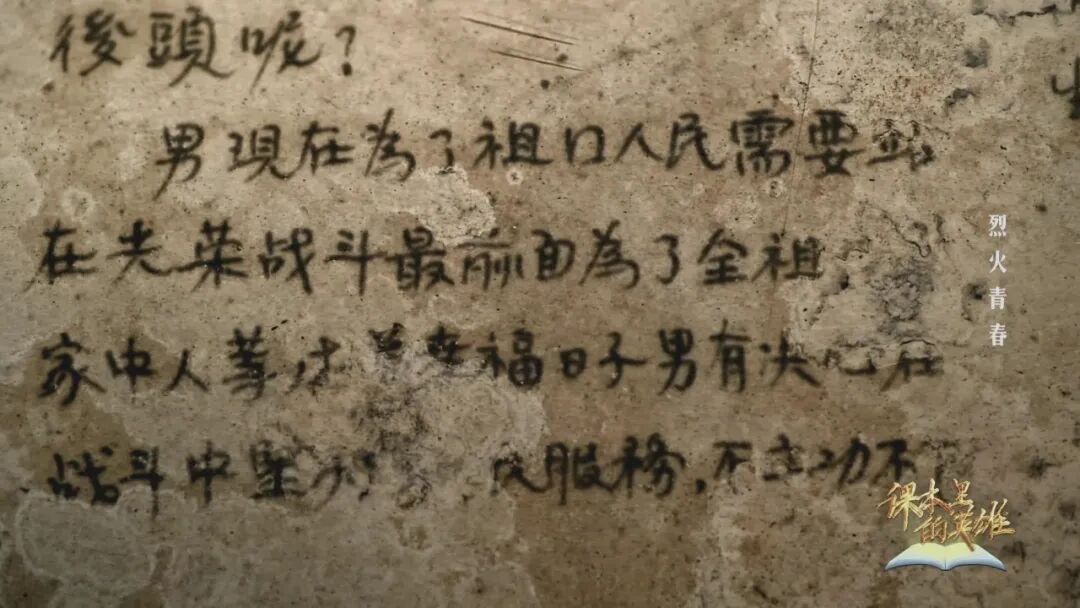 後頭呢?
男現在為了祖口人民需要站
在光荣战斗最前面為了全祖
家中人等过着幸福日子男有决心在
战斗中坚 服務,不立功不
烈火青春
课本里的英雄